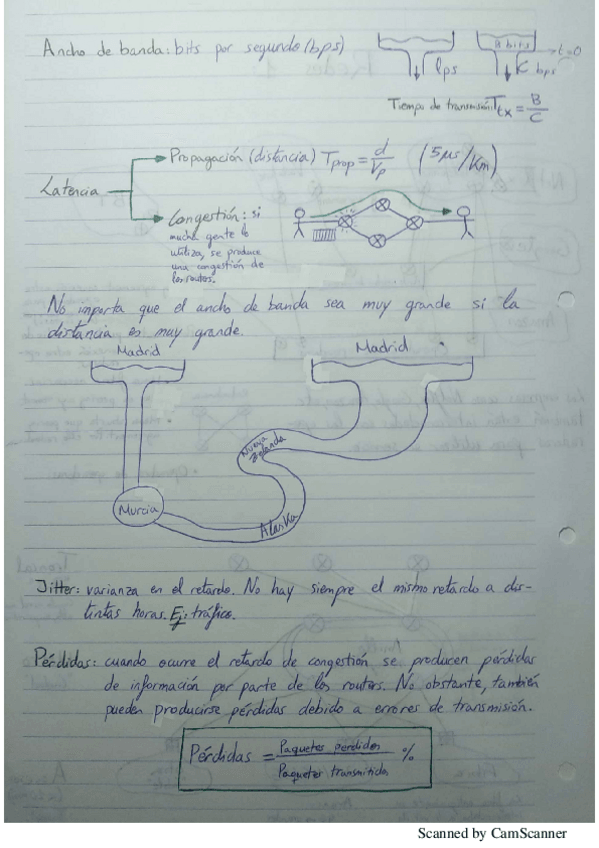 Ancho de banda: bits por segundo (bps)
B bits
t=0
lps
C bps
Tiempo de transmisión Ttx = B/C
Propagación (distancia) Tprop = d/Vp (5µs/Km)
Latencia
Congestión: si
mucha gente lo
utiliza, se produce
una congestión de
los routers.
No importa que el ancho de banda sea muy grande si la
distancia es muy grande.
Madrid
Madrid
Nueva
Zelanda
Murcia
Alaska
Jitter: varianza en el retardo. No hay siempre el mismo retardo a dis-
tintas horas. Ej: tráfico.
Pérdidas: cuando ocurre el retardo de congestión se producen pérdidas
de información por parte de los routers. No obstante, también
pueden producirse pérdidas debido a errores de transmisión.
Pérdidas = Paquetes perdidos / Paquetes transmitidos %
Scanned by CamScanner